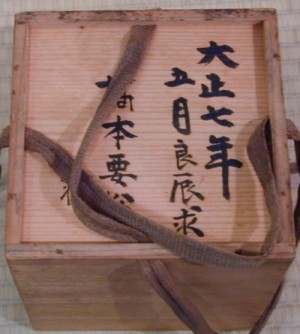 大正七年
五月良辰求
本要